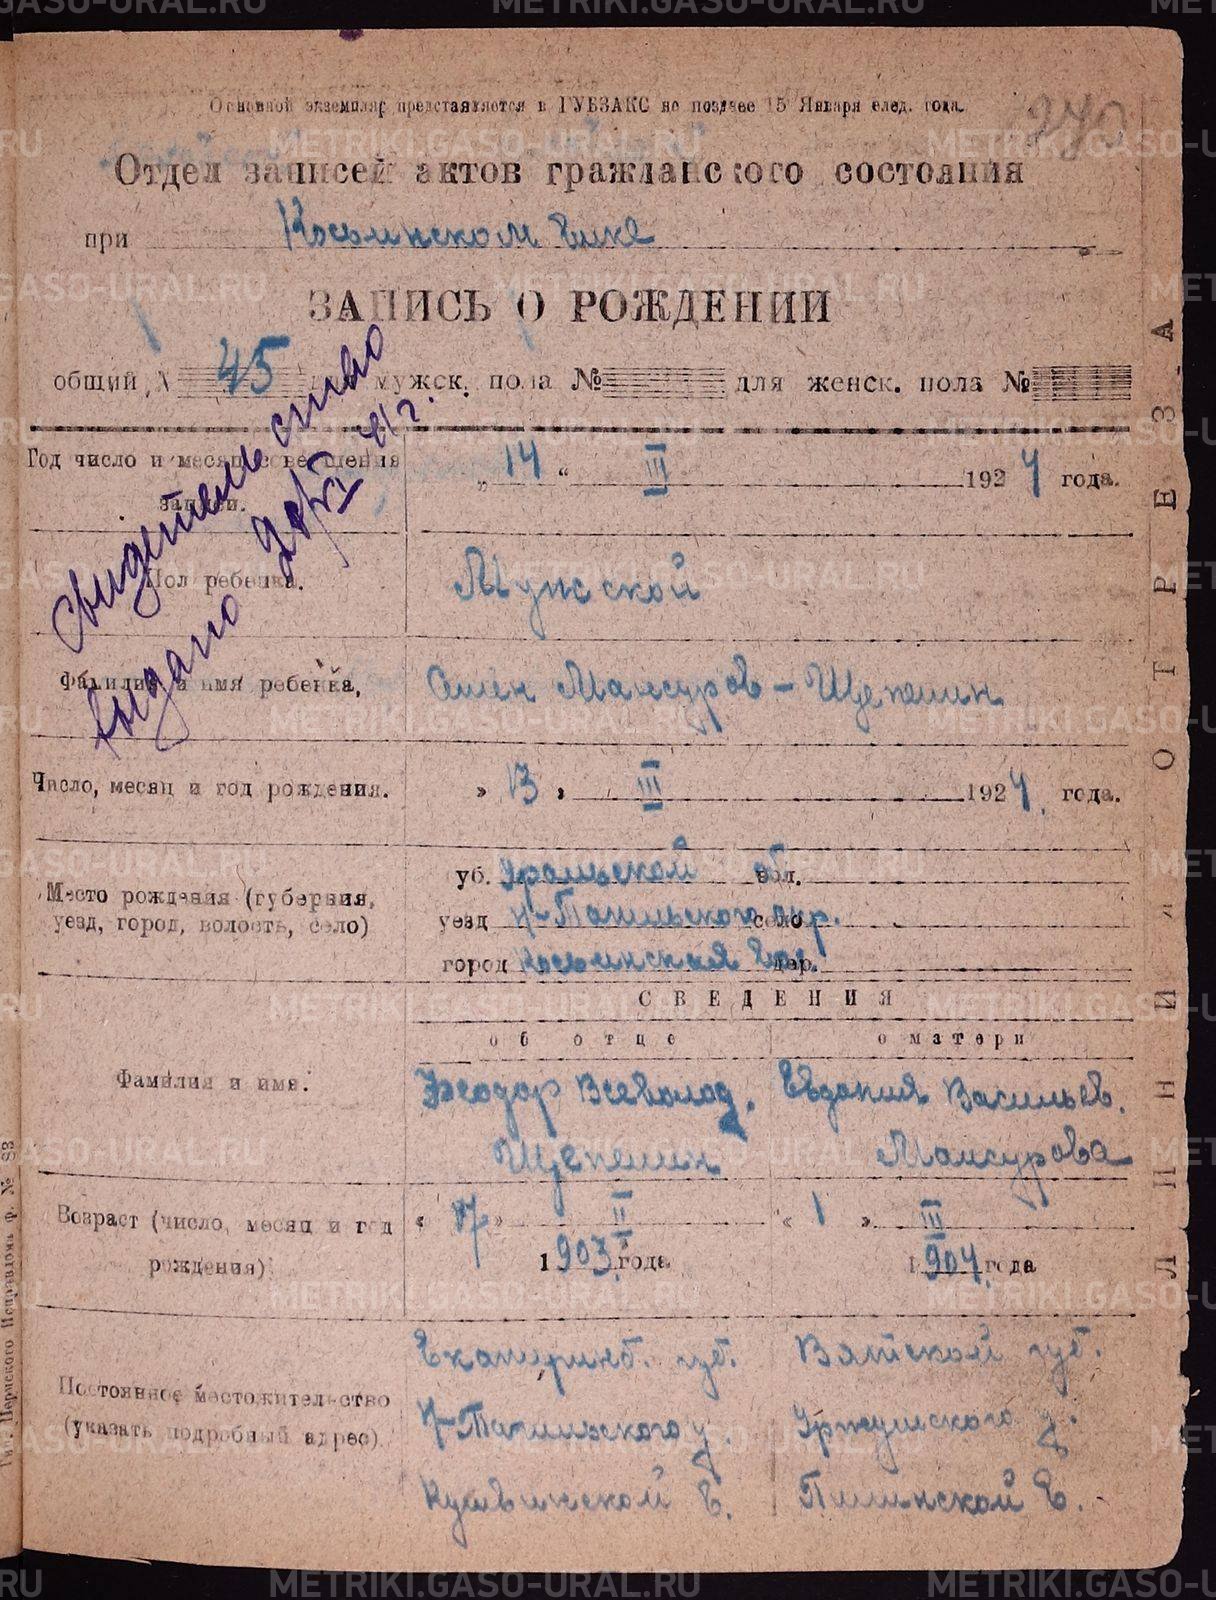 Основной экземпляр представляется в ГУБЗАКС не позднее 15 Января след. года.
270
Отдел записей актов гражданского состояния
при Косьинском Вике
ЗАПИСЬ О РОЖДЕНИИ
общий № 45 для мужск. пола № для женск. пола №
свидетельство
выдано
Год число и месяц совершения
записи.
„ 14 “ III 1924 года.
Пол ребенка.
Мужской
Фамилия и имя ребенка,
Мансуров-Щепкин
Число, месяц и год рождения.
» 13 » III 1924. года.
Место рождения (губерния,
уезд, город, волость, село)
губ. Уральской об вол.
уезд Н-Тагильского окр. село
город Вол. дер.
СВЕДЕНИЯ
об отце
о матери
Фамилия и имя.
Феодор Всеволод.
Щепкин
Евдокия Васильев.
Мансурова
Возраст (число, месяц и год
рождения)
« 17 » II
1903 года
« 1 » III
1904 года
Постоянное местожительство
(указать подробный адрес)
Екатеринб. губ.
Н-Тагильского у.
Кушвинской в.
Вятской губ.
Уржумского у.
в.
ЛИНИЯ ОТРЕЗА
Тип. Пермского Исправдома ф. № 83
METRIKI.GASO-URAL.RU